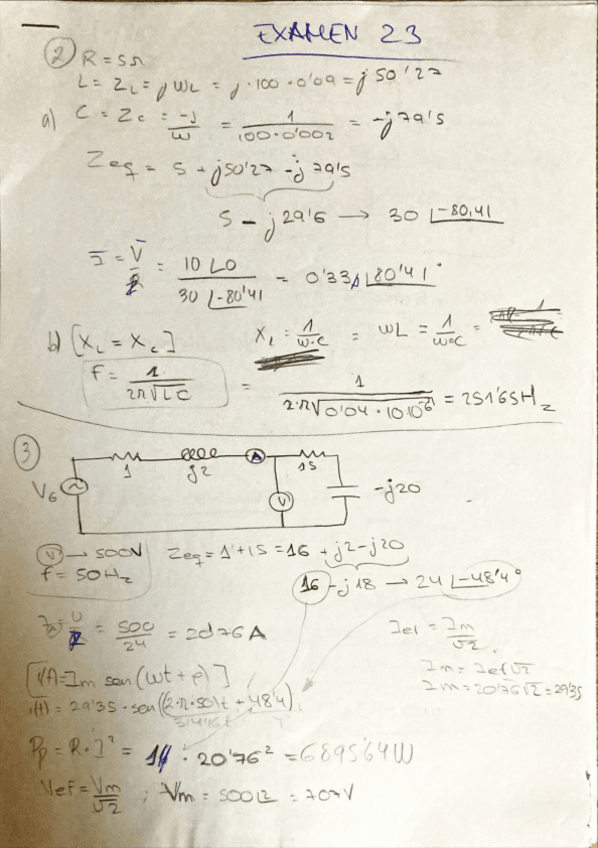 EXAMEN 23
② R = 5Ω
L = Z_L = jWL = j·100·0'09 = j50'27
a) C = Z_C = -j/W = 1/(100·0'002) = -j79'5
Zeq = 5 + j50'27 - j79'5
5 - j29'6 → 30 ∠-80,41
I = V/Z = 10∠0 / 30∠-80'41 = 0'33A ∠80'41°
b) [X_L = X_C] X_L = 1/(W·C) = WL = 1/(W·C) =
f = 1/(2π√LC) = 1/(2·π√(0'04·10·10⁻⁶)) = 251'65Hz
③
1 j2 A 15
V6 V -j20
V → 500V Zeq = 1+15 = 16 + j2 - j20
f = 50Hz
16 - j18 → 24 ∠-48'4°
= U/Z = 500/24 = 20'76A Ief = Im/√2
[i(t) = Im sen(wt + φ)] Im = Ief√2
i(t) = 29'35·sen((2·π·50)t + 48'4) Im = 20'76√2 = 29'35
314'16t φ
Pp = R·I² = 16·20'76² = 6895'64W
Vef = Vm/√2 ; Vm = 500√2 = 707V